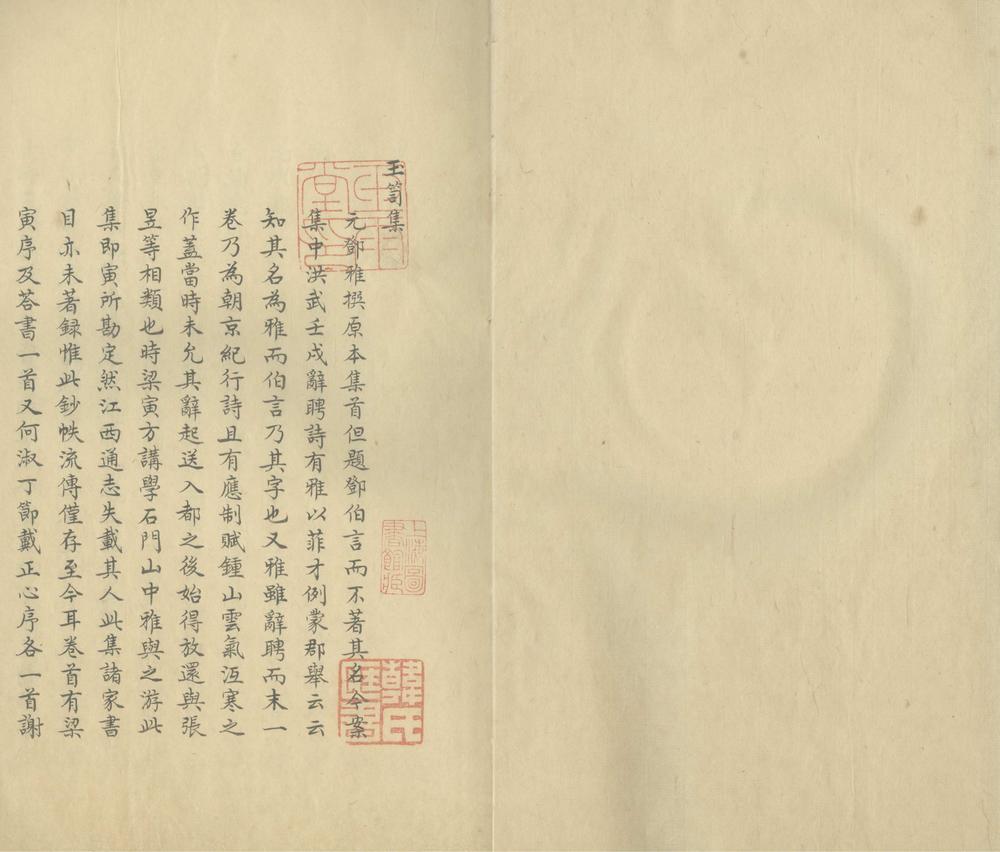 玉笥集
元鄧雅撰原本集首但題鄧伯言而不著其名今案
集中洪武壬戌辭聘詩有雅以菲才例蒙郡舉云云
知其名為雅而伯言乃其字也又雅雖辭聘而末一
卷乃為朝京紀行詩且有應制賦鍾山雲氣沍寒之
作蓋當時未允其辭起送入都之後始得放還與張
昱等相類也時梁寅方講學石門山中雅與之游此
集即寅所勘定然江西通志失載其人此集諸家書
目亦未著録惟此鈔帙流傳僅存至今耳卷首有梁
寅序及荅書一首又何淑丁節戴正心序各一首謝
上海圖
書館藏
韓氏